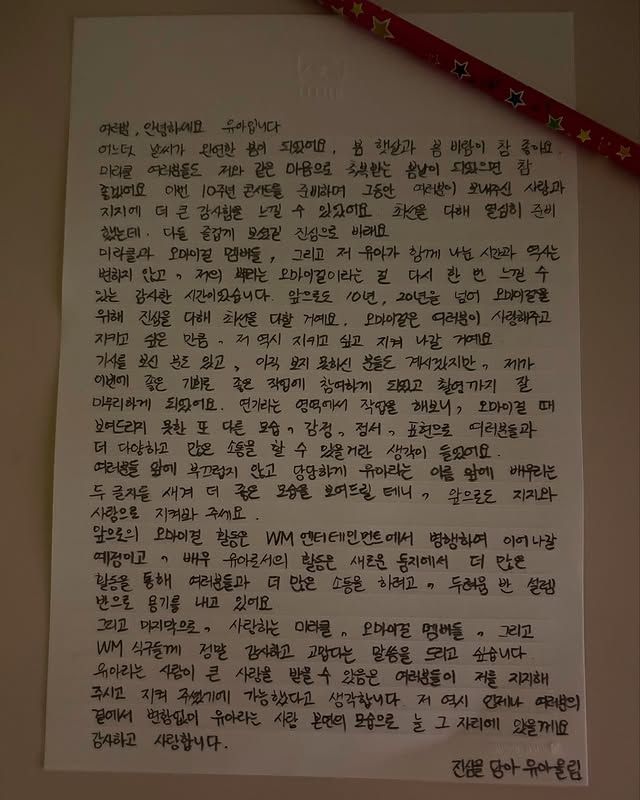 여러분, 안녕하세요 유아입니다
어느덧 날씨가 완연한 봄이 되었어요, 봄 햇살과 봄 바람이 참 좋아요.
미라클 여러분들도 저와 같은 마음으로 축복받는 봄날이 되었으면 참
좋겠어요 이번 10주년 콘서트를 준비하며 그동안 여러분이 보내주신 사랑과
지지에 더 큰 감사함을 느낄 수 있었어요. 최선을 다해 열심히 준비
했는데. 다들 즐겁게 보셨길 진심으로 바래요
미라클과 오마이걸 멤버들, 그리고 저 유아가 함께 나눈 시간과 역사는
변하지 않고, 저의 뿌리는 오마이걸이라는 걸 다시 한 번 느낄 수
있는 감사한 시간이었습니다. 앞으로도 10년, 20년을 넘어 오마이걸을
위해 진심을 다해 최선을 다할 거예요. 오마이걸은 여러분이 사랑해주고
지키고 싶은 만큼, 저 역시 지키고 싶고 지켜 나갈 거예요
기사를 보신 분도 있고, 아직 보지 못하신 분들도 계시겠지만, 제가
이번에 좋은 기회로 좋은 작업에 참여하게 되었고 촬영까지 잘
마무리하게 되었어요. 연기라는 영역에서 작업을 해보니, 오마이걸 때
보여드리지 못한 또 다른 모습, 감정, 정서, 표현으로 여러분들과
더 다양하고 많은 소통을 할 수 있을거란 생각이 들었어요.
여러분들 앞에 부끄럽지 않고 당당하게 유아라는 이름 앞에 배우라는
두 글자를 새겨 더 좋은 모습을 보여드릴 테니, 앞으로도 지지와
사랑으로 지켜봐 주세요.
앞으로의 오마이걸 활동은 WM 엔터테인먼트에서 병행하여 이어나갈
예정이고, 배우 유아로서의 활동은 새로운 둥지에서 더 많은
활동을 통해 여러분들과 더 많은 소통을 하려고, 두려움 반 설렘
반으로 용기를 내고 있어요
그리고 마지막으로, 사랑하는 미라클, 오마이걸 멤버들, 그리고
WM 식구들께 정말 감사하고 고맙다는 말씀을 드리고 싶습니다
유아라는 사람이 큰 사랑을 받을 수 있음은 여러분들이 저를 지지해
주시고 지켜 주셨기에 가능했다고 생각합니다. 저 역시 언제나 여러분의
곁에서 변함없이 유아라는 사람 본연의 모습으로 늘 그 자리에 있을게요
감사하고 사랑합니다.
진심을 담아 유아올림